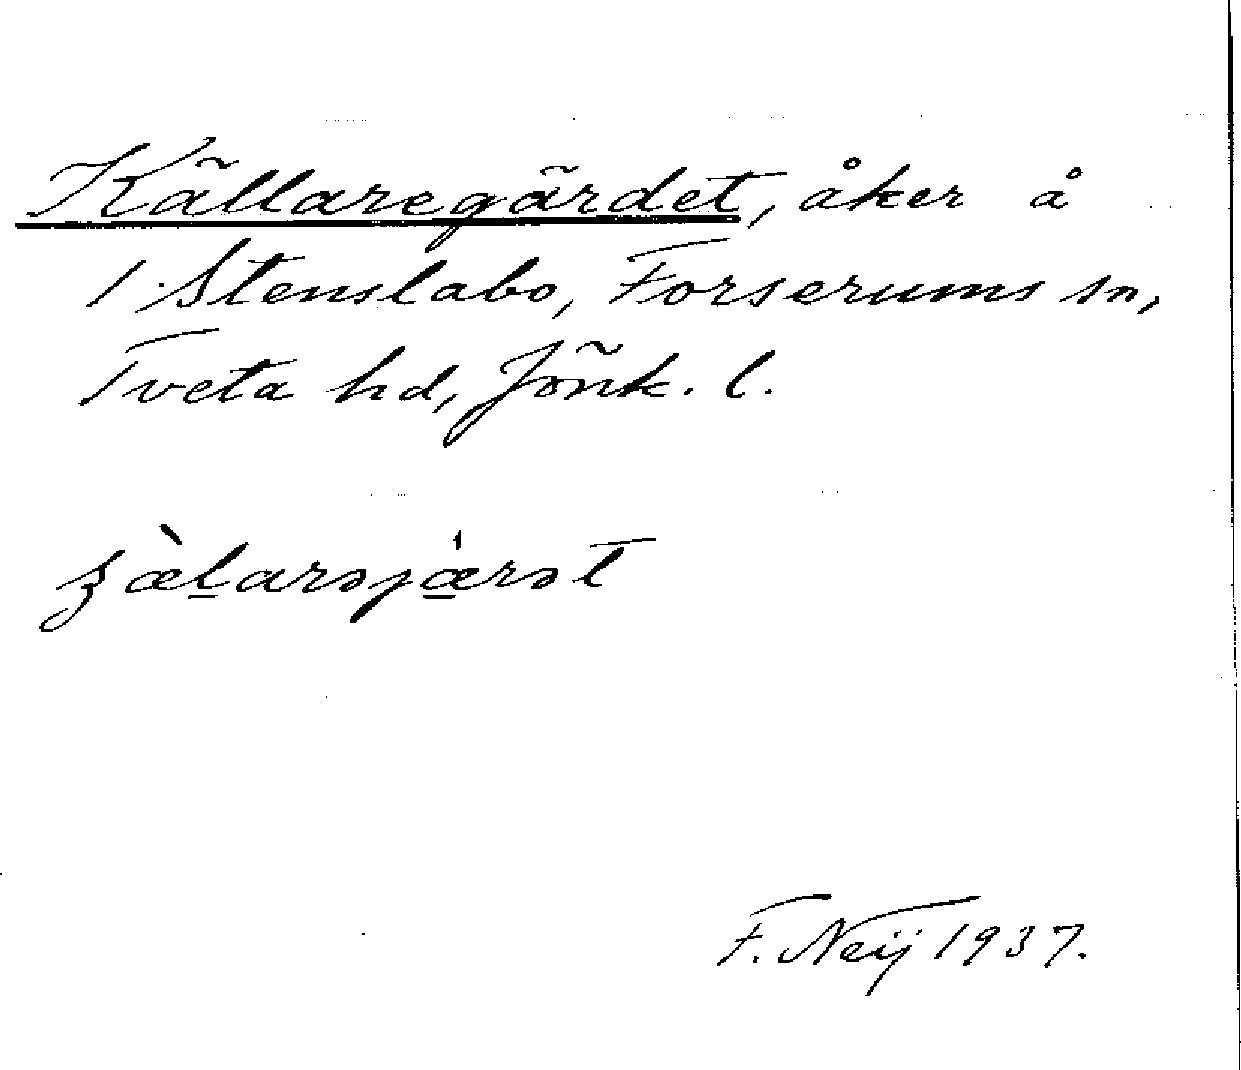 Källaregärdet, åker å
1 Stenslabo, Forserums sn,
Tveta hd, Jönk. l.
F. Neij 1937.